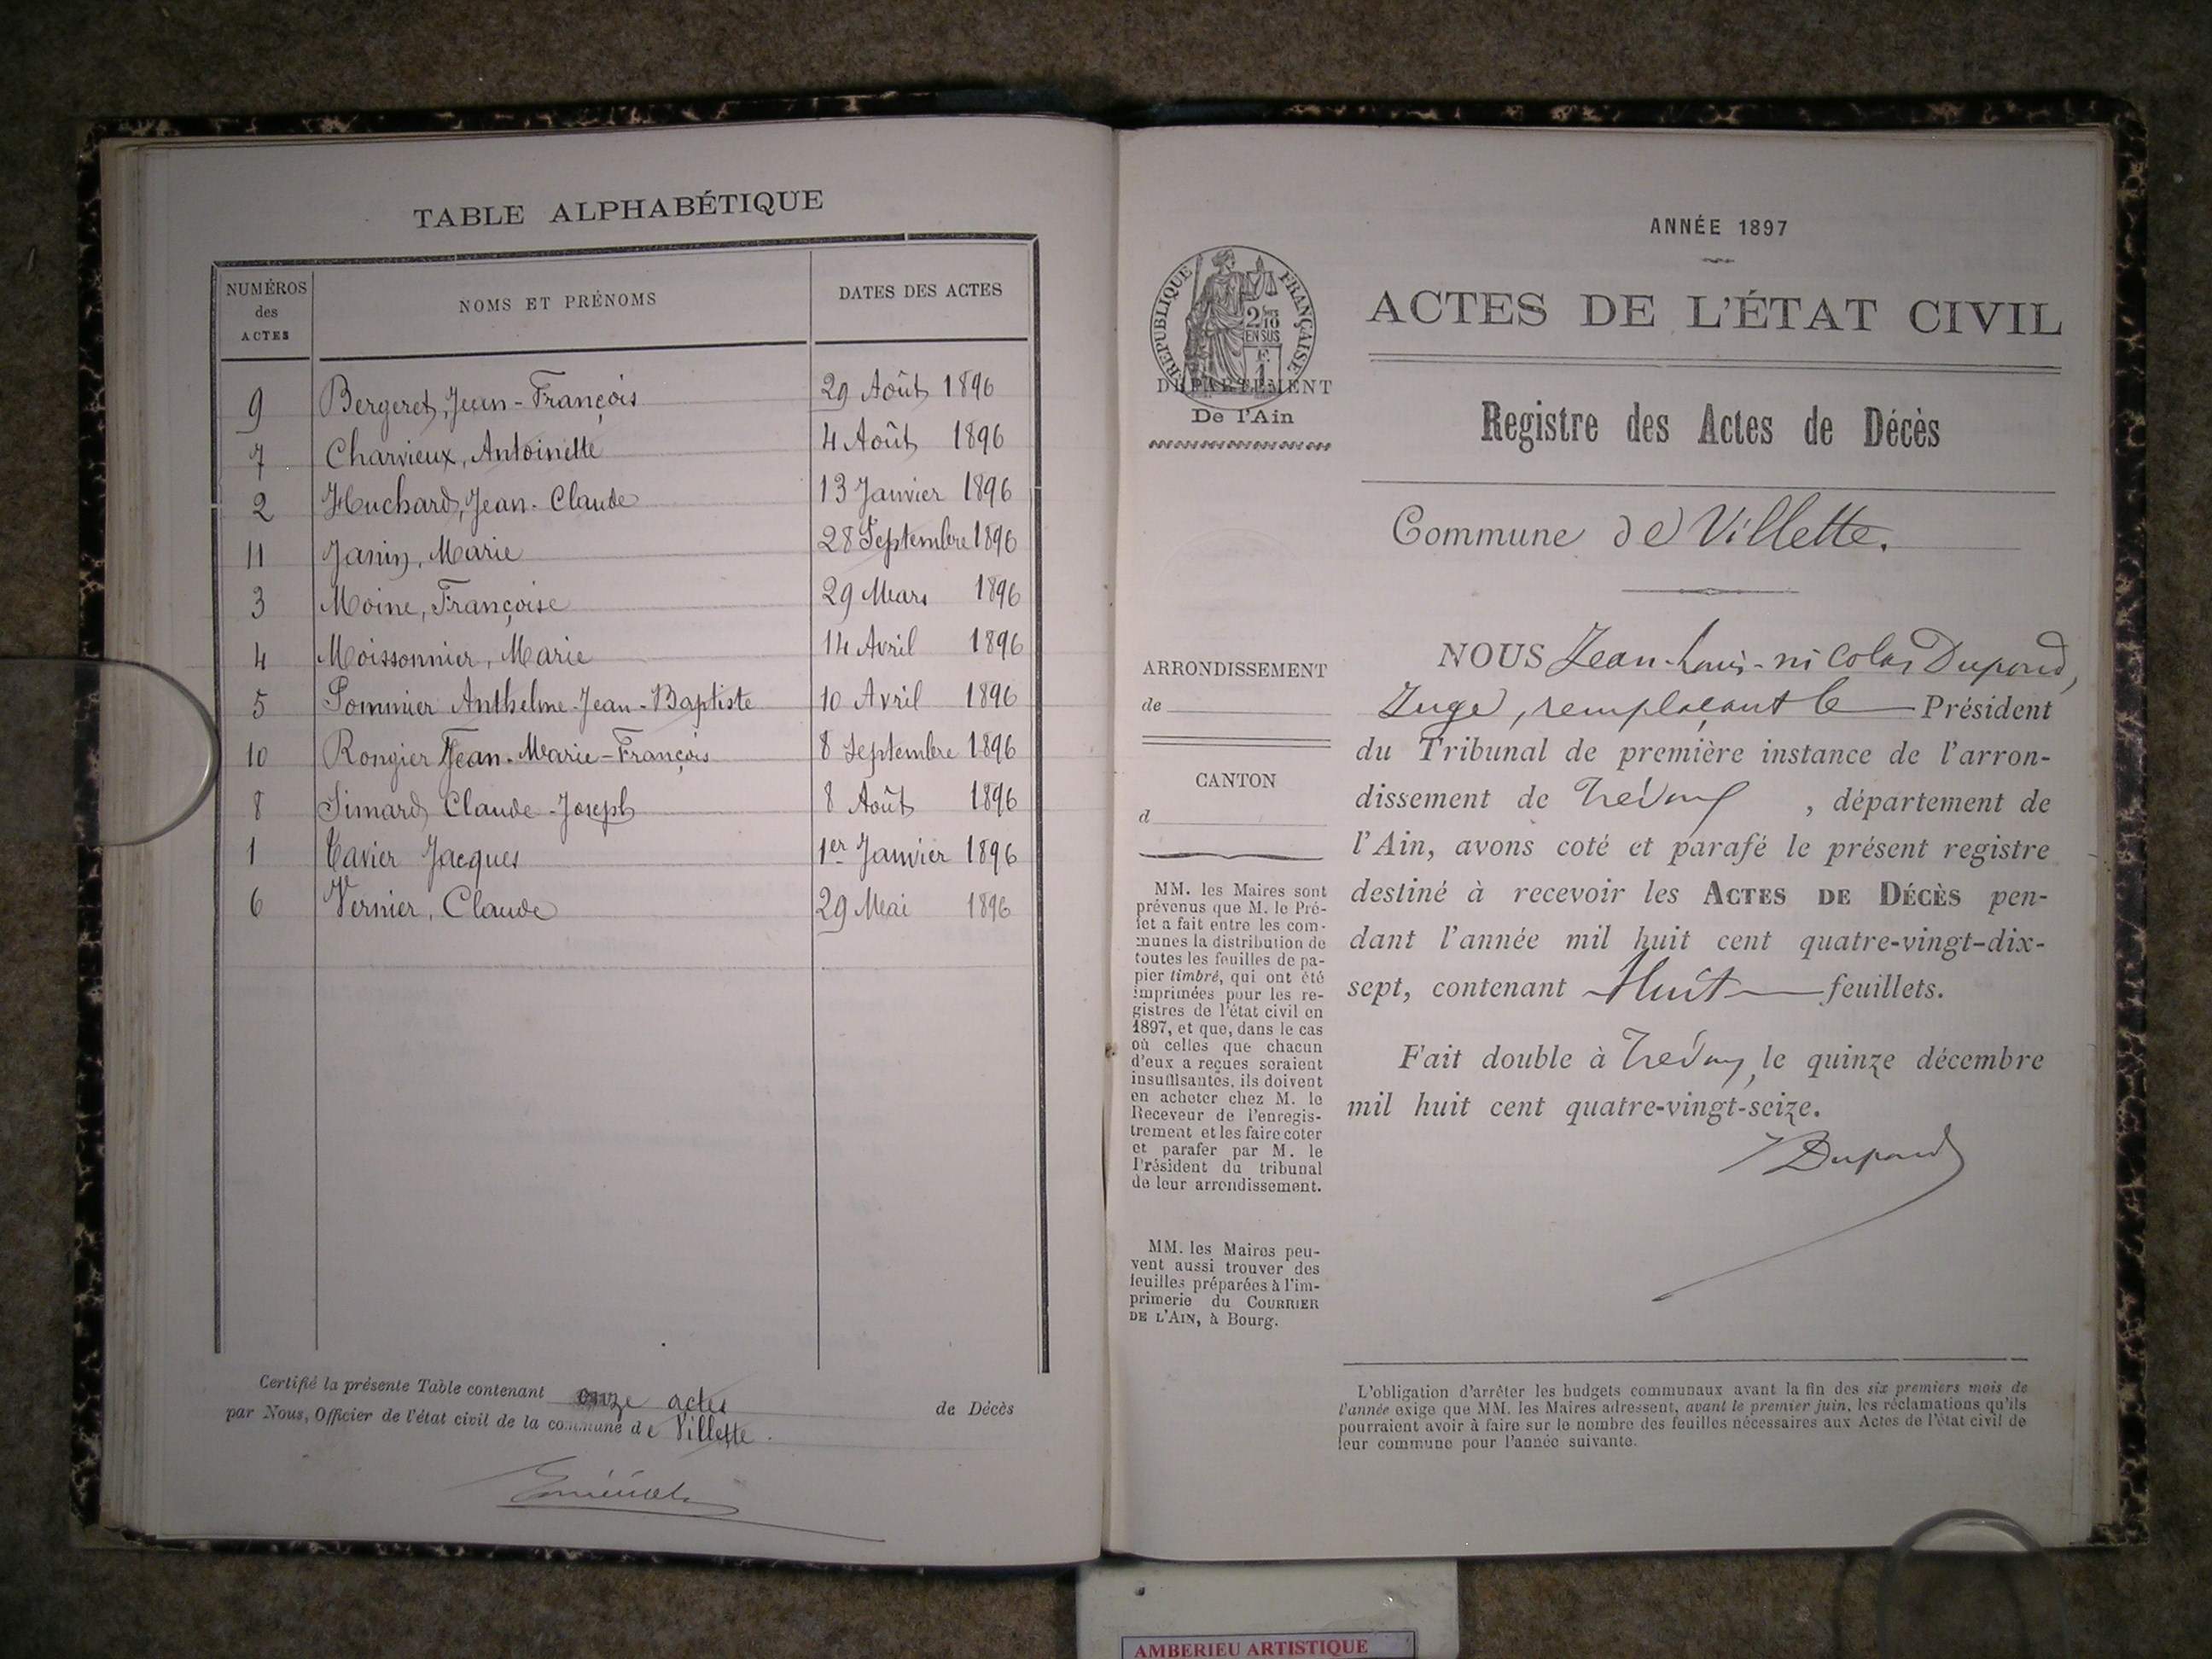 TABLE ALPHABÉTIQUE
NUMÉROS des ACTES | NOMS ET PRÉNOMS | DATES DES ACTES
9 Bergeret, Jean-François 29 Août 1896
7 Charvieux, Antoinette 4 Août 1896
2 Huchard, Jean-Claude 13 Janvier 1896
11 Janin, Marie 28 Septembre 1896
3 Moine, Françoise 29 Mars 1896
4 Moissonnier, Marie 14 Avril 1896
5 Pommier Anthelme-Jean-Baptiste 10 Avril 1896
10 Rongier Jean-Marie-François 8 Septembre 1896
8 Simard, Claude-Joseph 8 Août 1896
1 Tavier Jacques 1er Janvier 1896
6 Vernier, Claude 29 Mai 1896
Certifié la présente Table contenant onze actes de Décès
par Nous, Officier de l'état civil de la commune de Villette.
ANNÉE 1897
RÉPUBLIQUE FRANÇAISE
2/10
EN SUS
DÉPARTEMENT
De l'Ain
ACTES DE L'ÉTAT CIVIL
Registre des Actes de Décès
Commune de Villette.
ARRONDISSEMENT
de
CANTON
d
MM. les Maires sont
prévenus que M. le Pré-
fet a fait entre les com-
munes la distribution de
toutes les feuilles de pa-
pier timbré, qui ont été
imprimées pour les re-
gistres de l'état civil en
1897, et que, dans le cas
où celles que chacun
d'eux a reçues seraient
insuffisantes, ils doivent
en acheter chez M. le
Receveur de l'enregis-
trement et les faire coter
et parafer par M. le
Président du tribunal
de leur arrondissement.
MM. les Maires peu-
vent aussi trouver des
feuilles préparées à l'im-
primerie du COURRIER
DE L'AIN, à Bourg.
NOUS Jean-Louis-nicolas Dupond,
Juge, remplaçant le Président
du Tribunal de première instance de l'arron-
dissement de Trévoux, département de
l'Ain, avons coté et parafé le présent registre
destiné à recevoir les ACTES DE DÉCÈS pen-
dant l'année mil huit cent quatre-vingt-dix-
sept, contenant Huit feuillets.
Fait double à Trévoux, le quinze décembre
mil huit cent quatre-vingt-seize.
Dupond
L'obligation d'arrêter les budgets communaux avant la fin des six premiers mois de
l'année exige que MM. les Maires adressent, avant le premier juin, les réclamations qu'ils
pourraient avoir à faire sur le nombre des feuilles nécessaires aux Actes de l'état civil de
leur commune pour l'année suivante.
AMBERIEU ARTISTIQUE